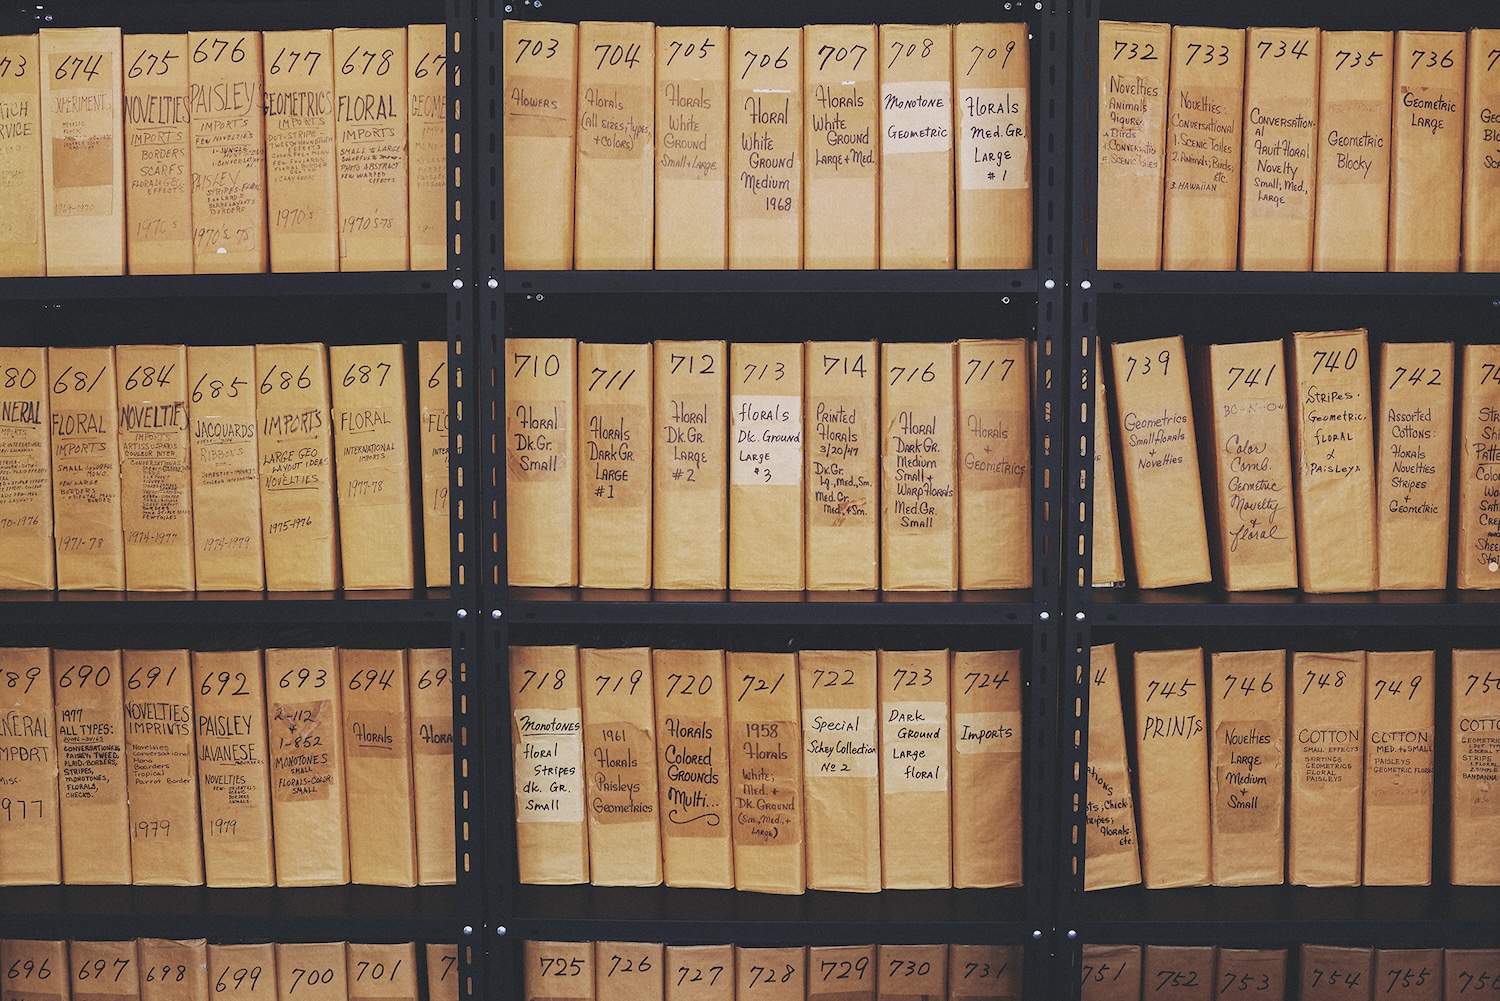 674
EXPERIMENTS
1969-1970
675
NOVELTIES
IMPORTS
BORDERS
SCARFS
FLORAL + GEO
EFFECTS
1970's
676
PAISLEY
IMPORTS
FEW NOVELTIES
PAISLEY
BORDERS
1970's-78
677
GEOMETRICS
IMPORTS
1970's
678
FLORAL
IMPORTS
SMALL to LARGE
PHOTO ABSTRACT
FEW WARPED
EFFECTS
1970's78
703
Flowers
704
Florals
(All sizes, types,
+ colors)
705
Florals
White
Ground
Small + Large
706
Floral
White
Ground
Medium
1968
707
Florals
White
Ground
Large + Med.
708
Monotone
Geometric
709
Florals
Med. Gr.
Large
#1
732
Novelties
Animals
Figure
Birds
733
Novelties:
Conversational
1. Scenic Toiles
2. Animals, Birds,
etc.
3. Hawaiian
734
Conversation-
al
Fruit Floral
Novelty
Small, Med.,
Large
735
Geometric
Blocky
736
Geometric
Large
681
FLORAL
IMPORTS
BORDERS
1971-78
684
NOVELTIES
IMPORTS
1974-1977
685
JACQUARDS
RIBBONS
1974-1979
686
IMPORTS
LARGE GEO
LAYOUT IDEAS
NOVELTIES
1975-1976
687
FLORAL
INTERNATIONAL
IMPORTS
1977-78
710
Floral
Dk. Gr.
Small
711
Florals
Dark Gr.
Large
#1
712
Floral
Dk. Gr.
Large
#2
713
florals
Dk. Ground
Large
#3
714
Printed
Florals
3/20/47
Dk. Gr.
Lg., Med., Sm.
Med. Gr.
Med., + Sm.
716
Floral
Dark Gr.
Medium
Small +
Warp Florals
Med. Gr.
Small
717
Florals
+
Geometrics
739
Geometrics
Small florals
+
Novelties
741
Color
Comb.
Geometric
Novelty
&
floral
740
Stripes,
Geometric,
floral
&
Paisleys
742
Assorted
Cottons:
Florals
Novelties
Stripes
+
Geometric
690
1977
ALL TYPES:
CONVERSATIONALS
PAISLEY, TWEED,
PLAID, BORDERS,
STRIPES,
MONOTONES,
FLORALS,
CHECKS.
691
NOVELTIES
IMPRINTS
Novelties
Conversational
Boarders
Tropical
Parrot Border
1979
692
PAISLEY
JAVANESE
NOVELTIES
1979
693
2-112
+
1-852
MONOTONES
SMALL
FLORALS-COLOR
SMALL
694
Florals
718
Monotones
floral
Stripes
dk. Gr.
Small
719
1961
Florals
Paisleys
Geometrics
720
Florals
Colored
Grounds
Multi...
721
1958
Florals
White,
Med. +
Dk. Ground
(Sm., Med., +
Large)
722
Special
Schey Collection
No 2
723
Dark
Ground
Large
floral
724
Imports
745
PRINTS
746
Novelties
Large
Medium
+
Small
748
COTTON
SMALL EFFECTS
SHIRTINGS
GEOMETRICS
FLORAL
PAISLEYS
749
COTTON
MED. + SMALL
PAISLEYS
GEOMETRIC FLORAL
696
697
698
699
700
701
725
726
727
728
729
730
731
751
752
753
754
755